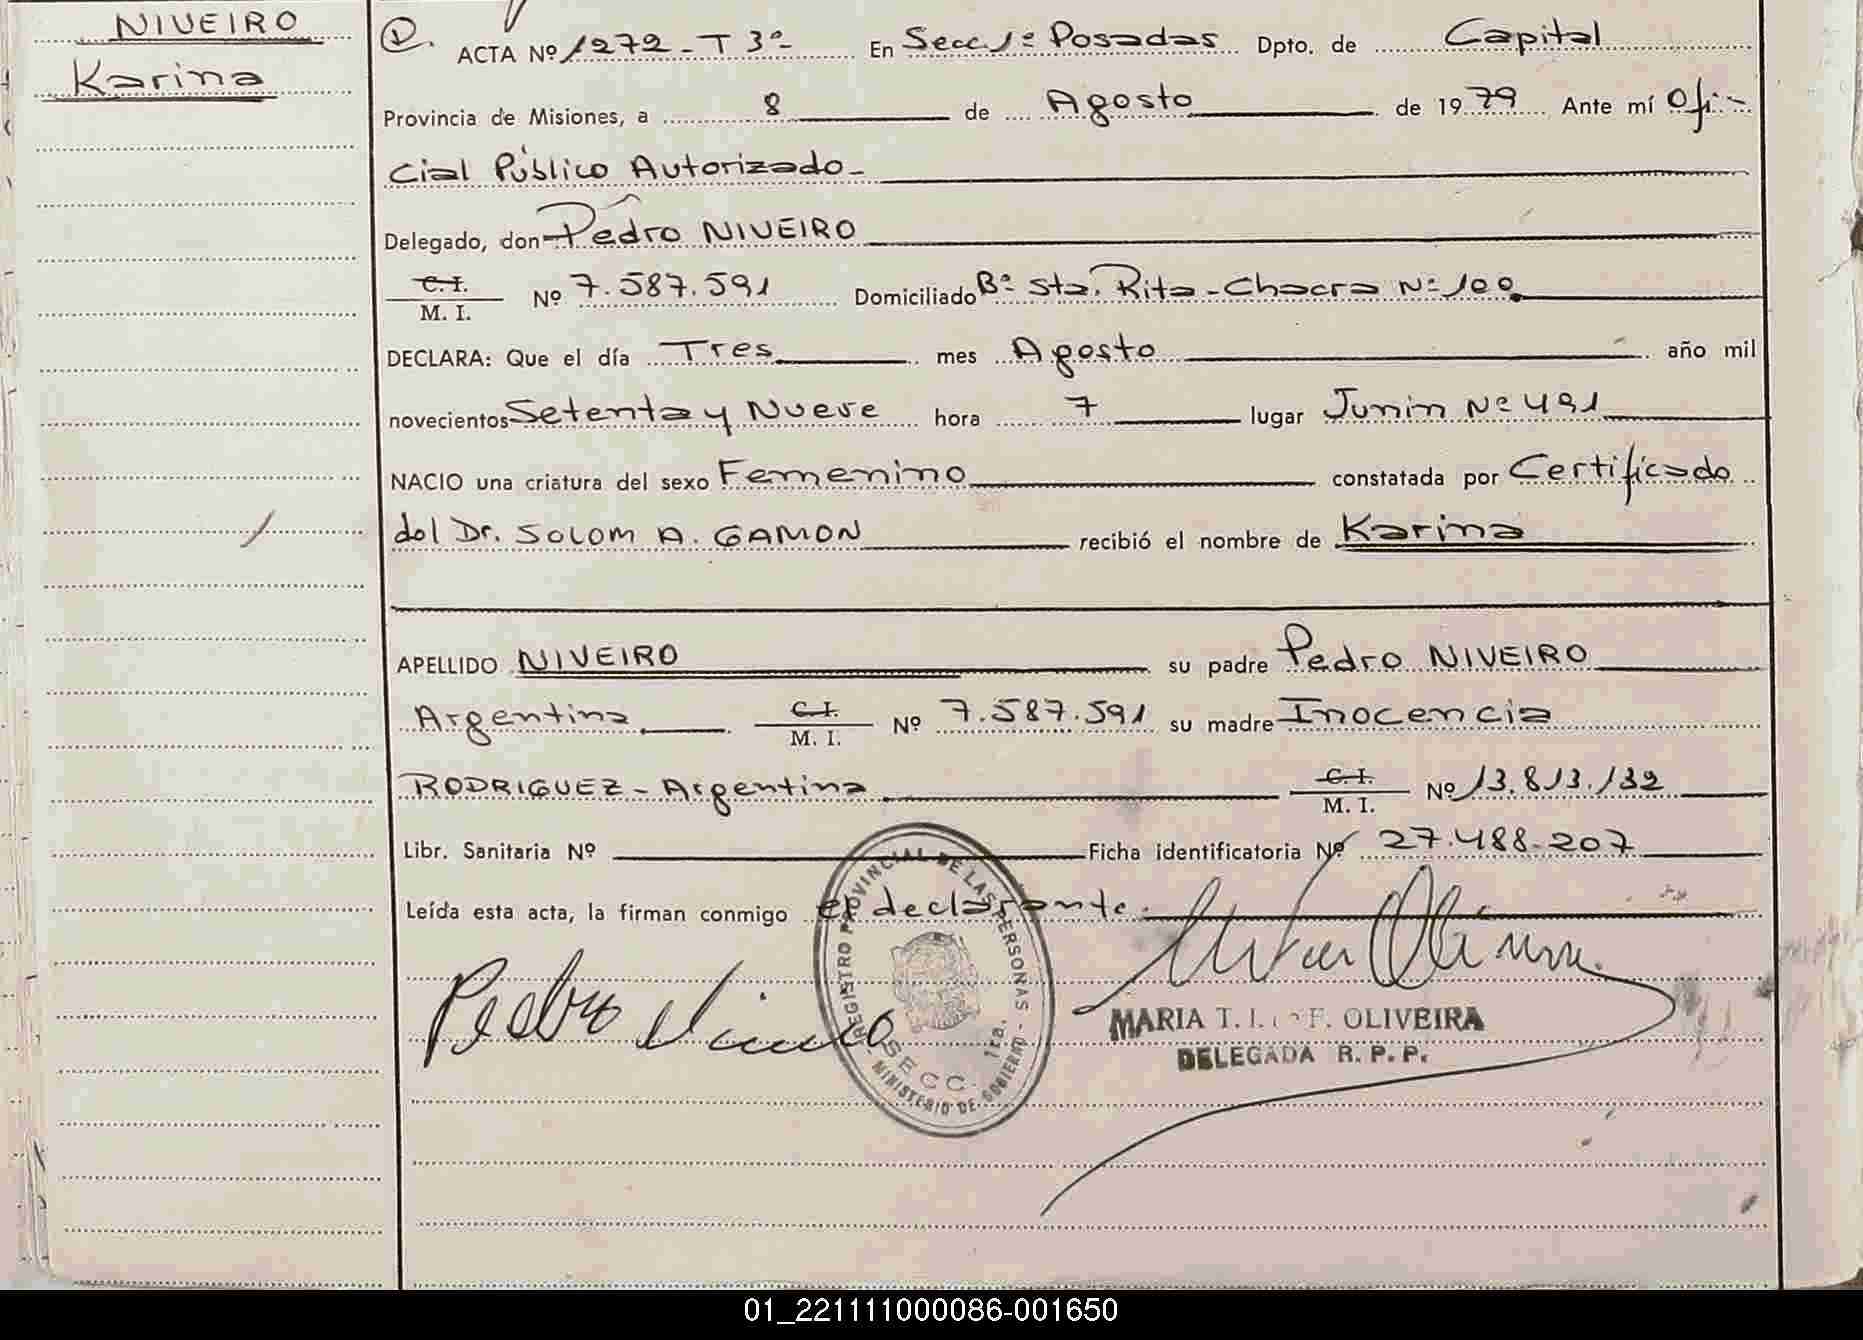 NIVEIRO
Karina
ACTA Nº 1272 - T 3º - En Secc. 1ª Posadas Dpto. de Capital
Provincia de Misiones, a 8 de Agosto de 1979 Ante mí Ofi-
cial Público Autorizado -
Delegado, don Pedro NIVEIRO
C. I.
M. I. Nº 7.587.591 Domiciliado Bº Sta. Rita - Chacra Nº 100
DECLARA: Que el día Tres mes Agosto año mil
novecientos Setenta y Nueve hora 7 lugar Junin Nº 491
NACIO una criatura del sexo Femenino constatada por Certificado
del Dr. SOLOM A. GAMON recibió el nombre de Karina
APELLIDO NIVEIRO su padre Pedro NIVEIRO
Argentina C. I.
M. I. Nº 7.587.591 su madre Inocencia
RODRIGUEZ - Argentina C. I.
M. I. Nº 13.813.132
Libr. Sanitaria Nº Ficha identificatoria Nº 27.488.207
Leída esta acta, la firman conmigo el declarante.
Pedro Niveiro
REGISTRO PROVINCIAL DE LAS PERSONAS - MINISTERIO DE GOBIERNO -
SECC. 1ra.
MARIA T. F. OLIVEIRA
DELEGADA R. P. P.
01_221111000086-001650